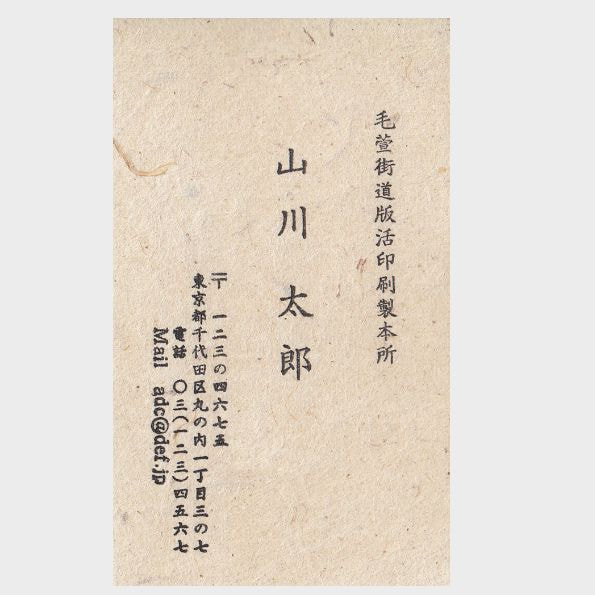 毛萱街道版活印刷製本所
山川 太郎
〒 一二三の四六七五
東京都千代田区丸の内一丁目三の七
電話 〇三(一二三)四五六七
Mail adc@def.jp